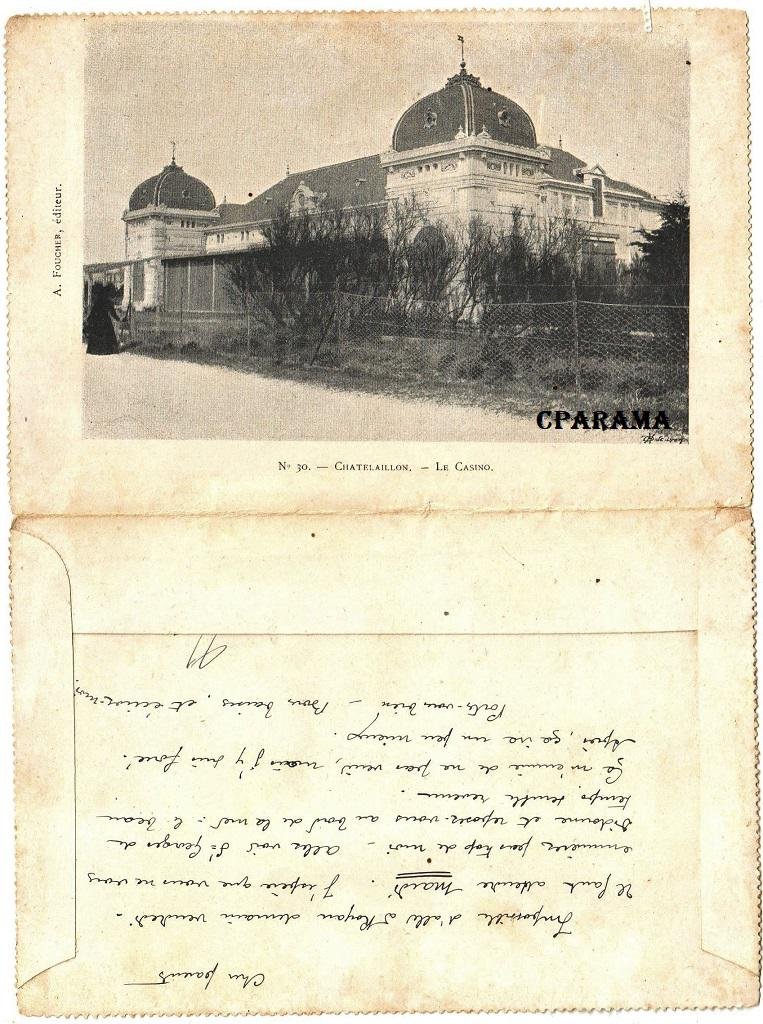 A. Foucher, éditeur.
CPARAMA
Nº 30. — Chatelaillon. — Le Casino.
Chers parents
Impossible d'aller à Royan demain vendredi -
Il faut attendre mardi. J'espère que vous ne vous
ennuierez pas trop de moi - Allez voir St Georges de
Didonne et reposez-vous au bord de la mer - le beau
temps semble revenu
Ça m'ennuie de ne pas venir, mais j'y suis forcé.
Après, ça ira un peu mieux.
Portez-vous bien - Bons bains, et écrivez-moi.